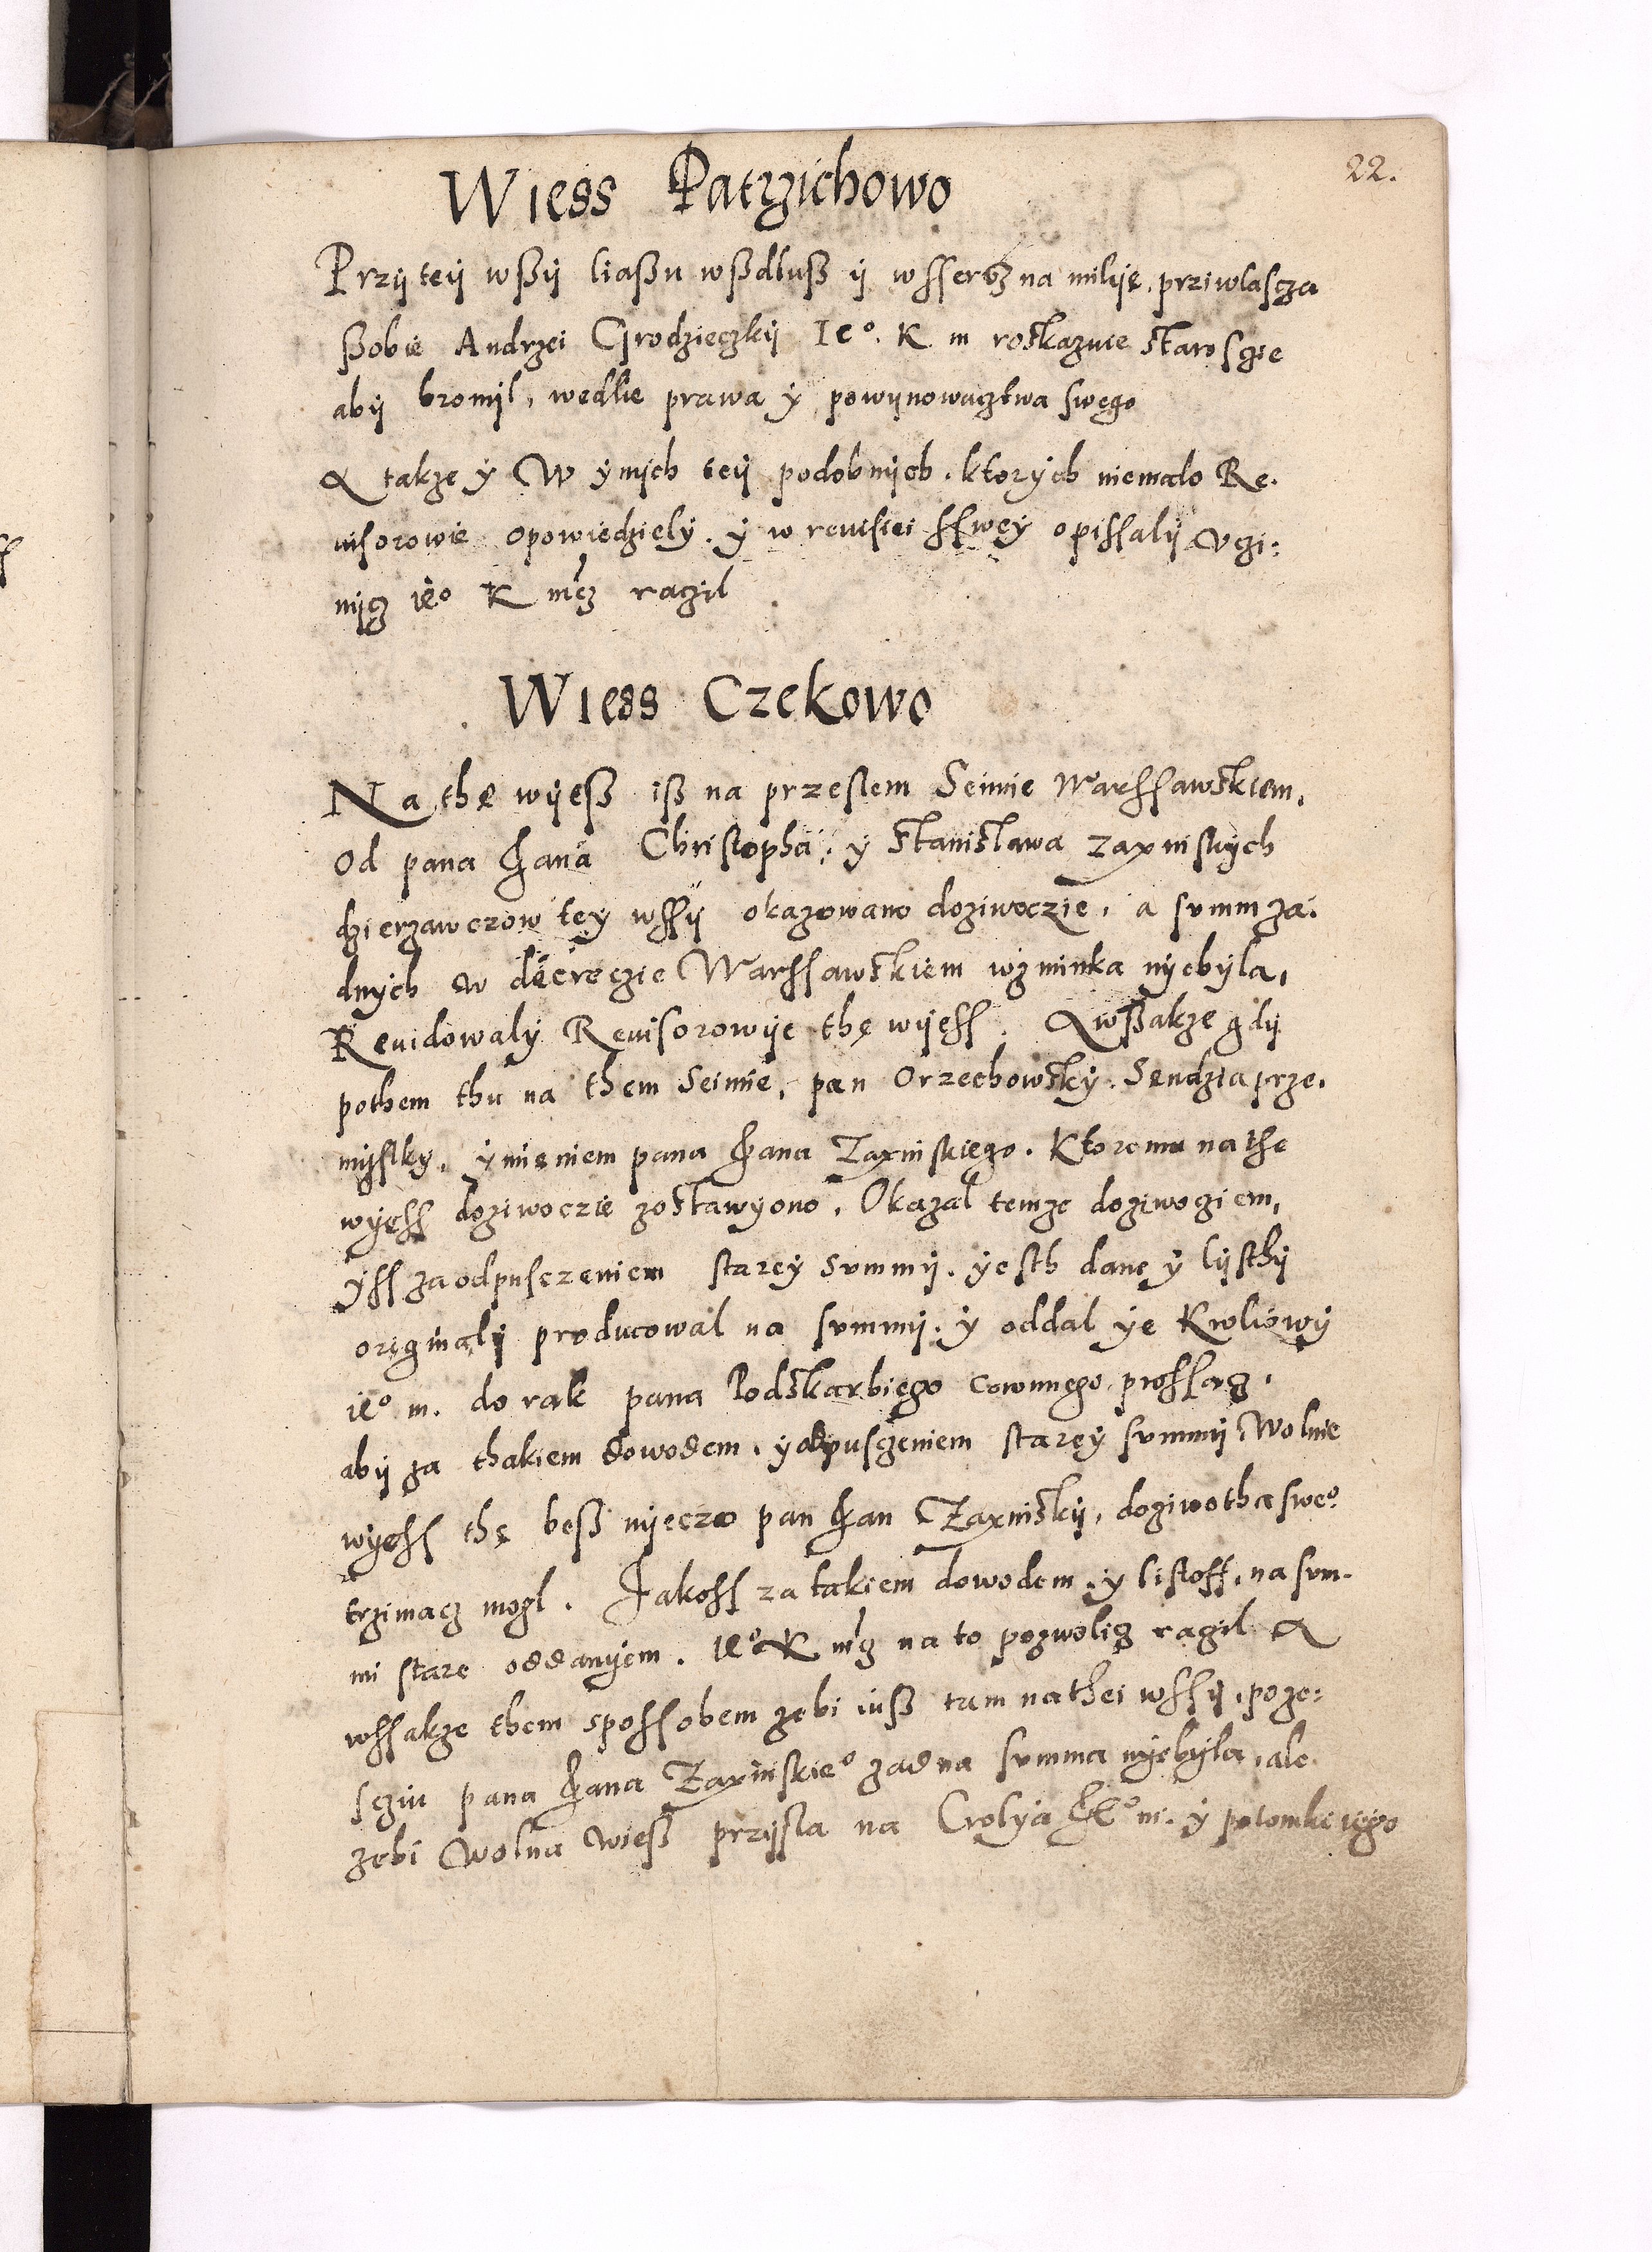 22.
Wiess Patrzichowo
Przÿ teÿ wßÿ liaßu wßdłuß ÿ wssersz na milię, prziwlascza
ßobie Andrzei Grodzieczkÿ Ieº. K m roskazuie starosczie
abÿ bronÿl, wedlie prawa ÿ powÿnowacztwa swego
A takze ÿ W ÿnÿch teÿ podobnÿch. ktorÿch niemalo Re.
uisorowie opowiedziely. ÿ w reuisiei sswey opissalÿ vczi:
nÿcz ieº K mcz raczil
Wiess Czekowo
Na thę wÿeß iß na przeslem Seimie Warssawskiem,
Od pana Jana Christopha, ÿ Stanislawa Zaxinskÿch
dzierzawczow teÿ wssÿ okazowano doziwoczie, a summ za:
dnÿch w decreczie Warssawskiem wzminka nÿebÿla,
Reuidowalÿ Reuisorowÿe thę wÿess. Awßakze gdÿ
pothem thu na them Seimie, pan Orzechowskÿ. Sendzia prze.
mÿslkÿ, ÿmieniem pana Jana Zaxinskiego. Ktoremu na the
wÿess doziwoczie zostawÿono. Okazal temze doziwocziem,
ÿss za odpusczeniem starey Summÿ. ÿesth dane ÿ lÿsthÿ
originalÿ producowal na summÿ. ÿ oddal ÿe Kroliowÿ
ieº m. do rak pana Podskarbiego Coronnego prossacz.
abÿ za thakiem dowodem. ÿ odpusczeniem starey summÿ, Wolnie
wÿess thę beß nÿeczo pan Jan Czaxinskÿ, doziwotha sweº
trzimacz mogl. Jakoss za takiem dowodem. ÿ listoff. na sum-
mi stare oddanÿem. Ieº K mcz na to pozwolicz raczil A
wssakze them spossobem zebi iuß tam na thei wssÿ. po ze:
sczin pana Jana Zaxinskieº zadna summa nÿebÿla, ale
zebi Wolna Wieß przÿsla na Crolÿa Jeº m. ÿ potomki iego